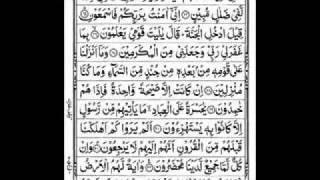 لَّفِیْ ضَلٰلٍ مُّبِیْنٍ اِنِّیْۤ اٰمَنْتُ بِرَبِّكُمْ فَاسْمَعُوْنِ
قِیْلَ ادْخُلِ الْجَنَّةَ قَالَ یٰلَیْتَ قَوْمِیْ یَعْلَمُوْنَ بِمَا
غَفَرَلِیْ رَبِّیْ وَجَعَلَنِیْ مِنَ الْمُكْرَمِیْنَ وَمَاۤ اَنْزَلْنَا
عَلٰی قَوْمِهٖ مِنْۢ بَعْدِهٖ مِنْ جُنْدٍ مِّنَ السَّمَآءِ وَمَا كُنَّا
مُنْزِلِیْنَ اِنْ كَانَتْ اِلَّا صَیْحَةً وَّاحِدَةً فَاِذَا هُمْ
خٰمِدُوْنَ یٰحَسْرَةً عَلَی الْعِبَادِ مَا یَاْتِیْهِمْ مِّنْ رَّسُوْلٍ
اِلَّا كَانُوْا بِهٖ یَسْتَهْزِءُوْنَ اَلَمْ یَرَوْا كَمْ اَهْلَكْنَا
قَبْلَهُمْ مِّنَ الْقُرُوْنِ اَنَّهُمْ اِلَیْهِمْ لَا یَرْجِعُوْنَ وَاِنْ
كُلٌّ لَّمَّا جَمِیْعٌ لَّدَیْنَا مُحْضَرُوْنَ وَاٰیَةٌ لَّهُمُ الْاَرْضُ